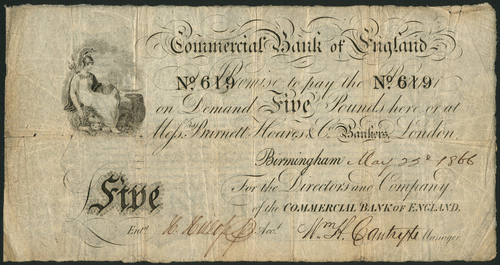 Commercial Bank of England
No. 619 No. 619
Promise to pay the
on Demand Five Pounds here or at
Messrs. Barnett Hoares & Co. Bankers, London
Birmingham May 1866
For the Directors and Company
Five of the COMMERCIAL BANK OF ENGLAND.
Entd. Acct. Wm. H. Manager